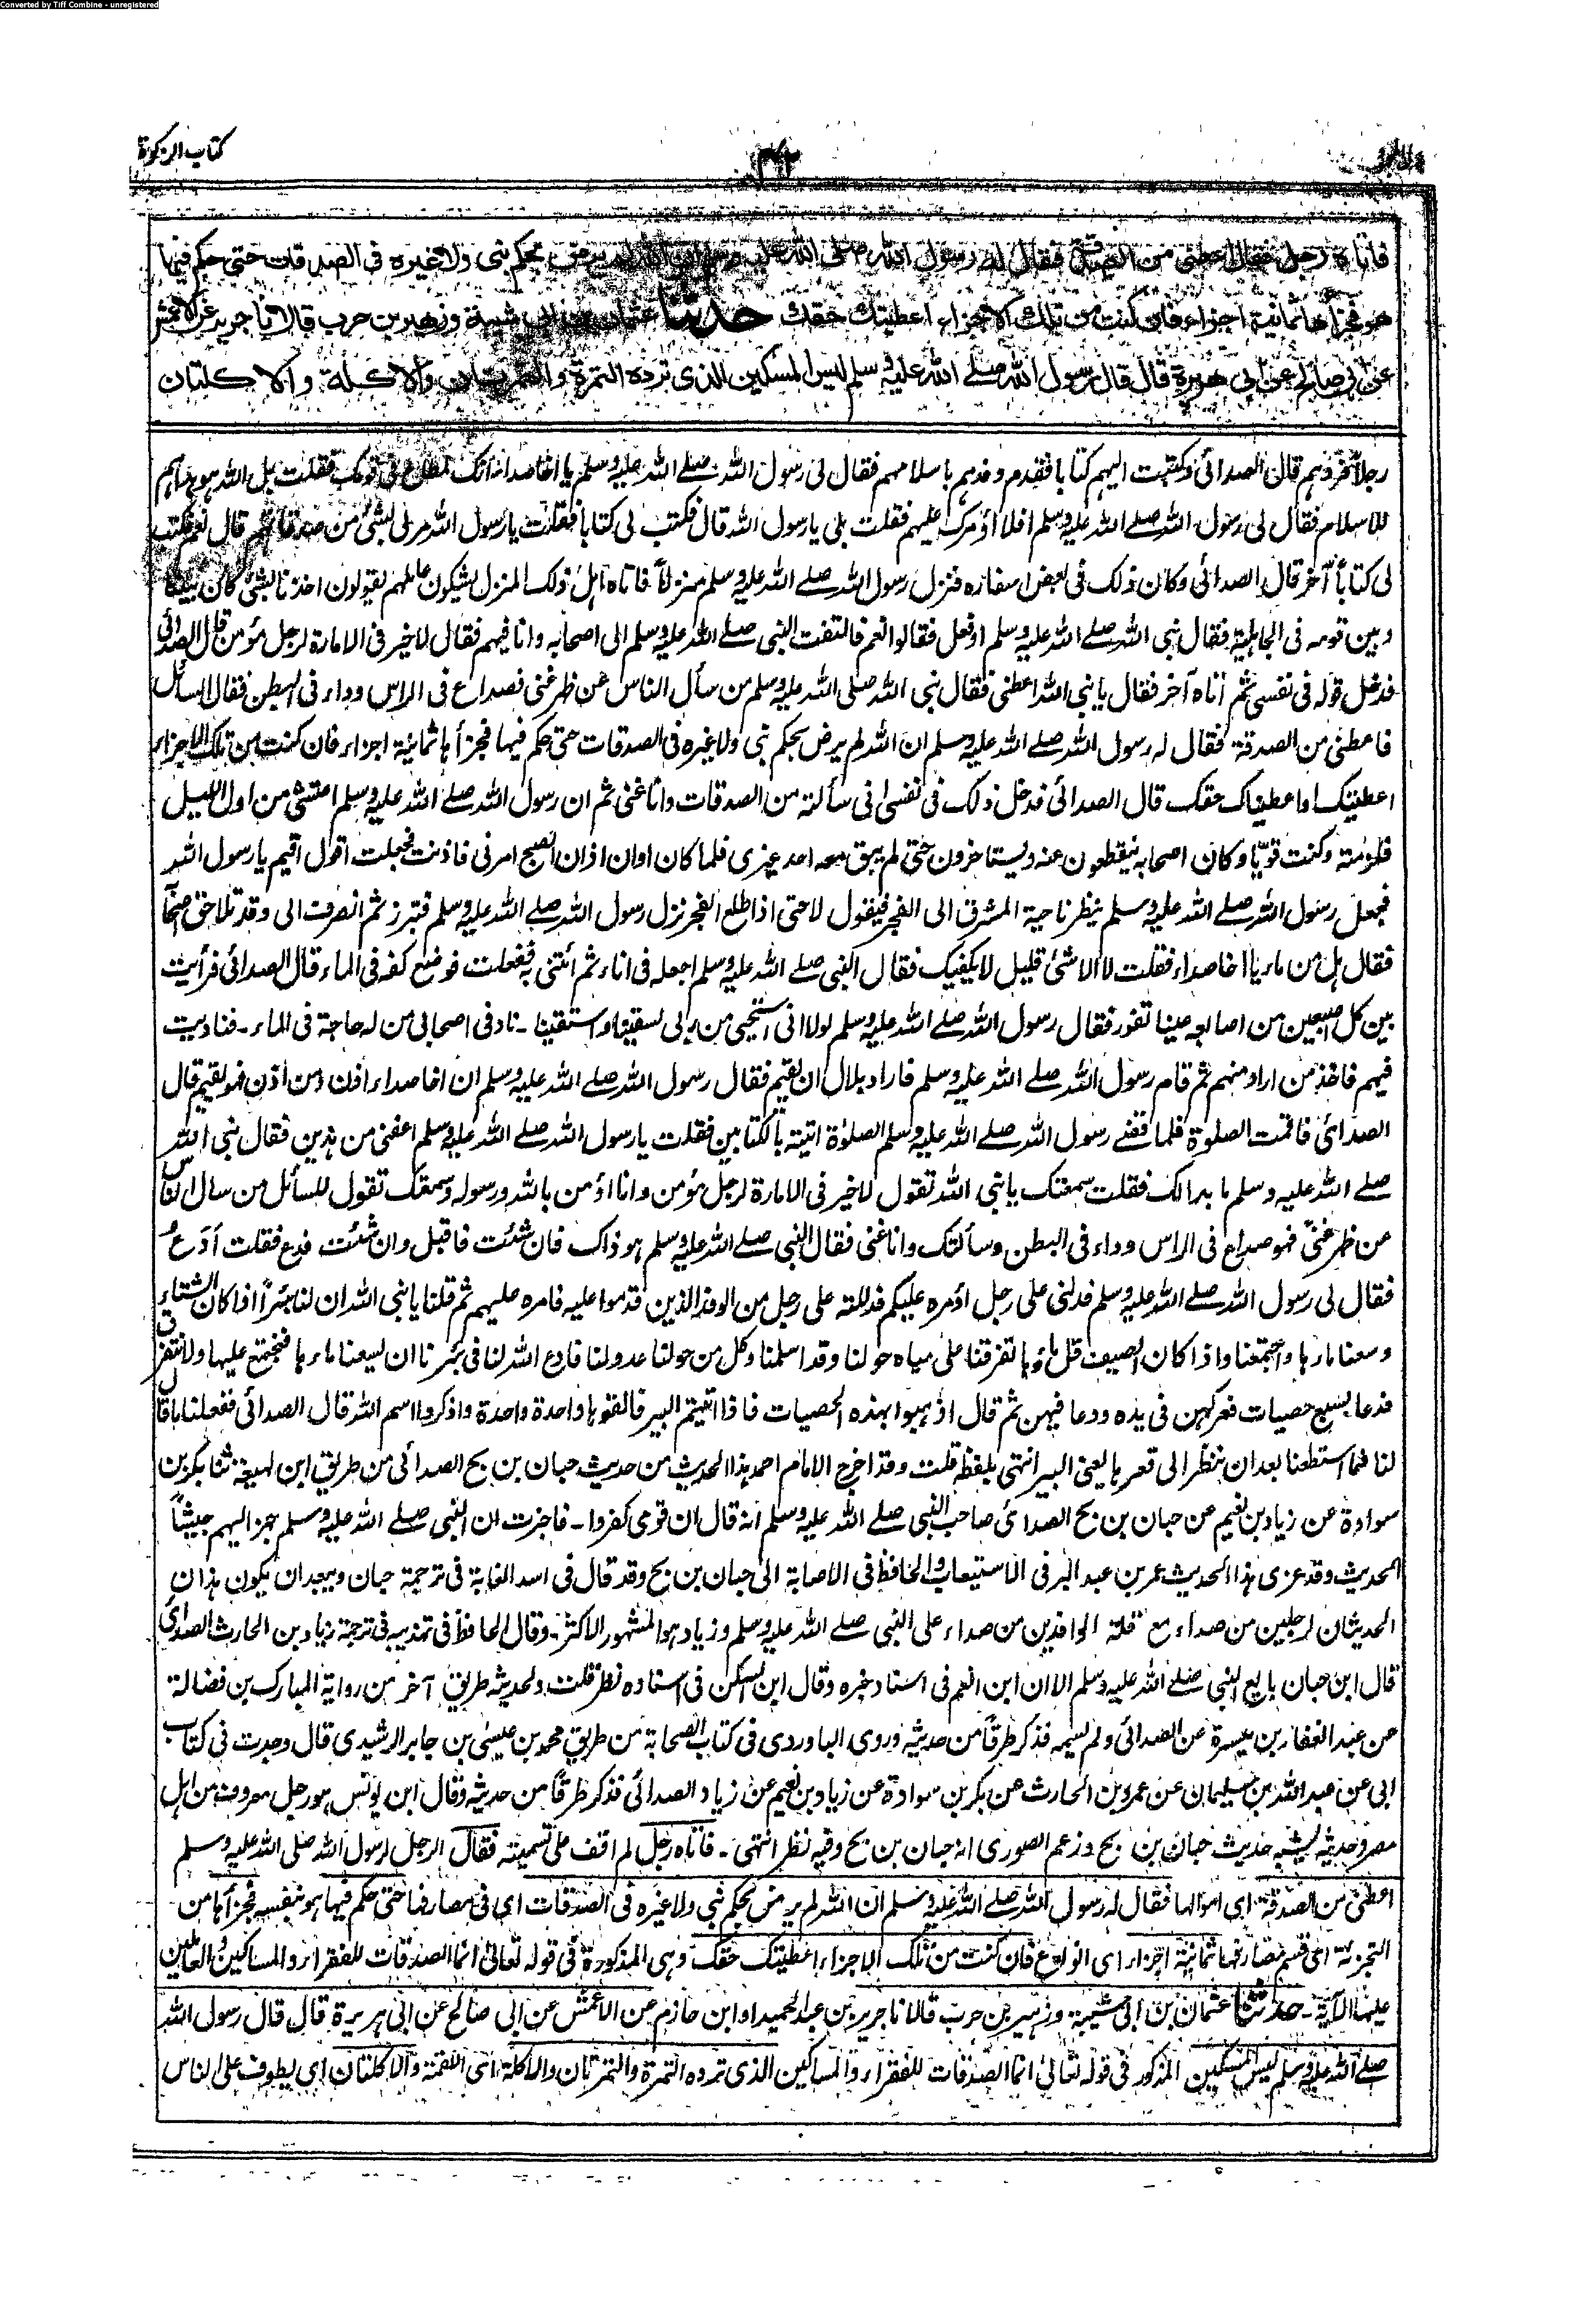 Converted by Tiff Combine - unregistered
كتاب الزكوة
فاتاه رجل فقال اعطني من الصدقة فقال له رسول الله صلى الله عليه وسلم ان الله لم يرض بحكم نبي ولا غيره في الصدقات حتى حكم فيها
هو فجزأها ثمانية اجزاء فان كنت من تلك الاجزاء اعطيتك حقك حدثنا عثمان بن ابي شيبة وزهير بن حرب قالا نا جرير عن الاعمش
عن ابي صالح عن ابي هريرة قال قال رسول الله صلے الله عليه وسلم ليس المسكين الذي ترده التمرة والتمرتان والاكلة والاكلتان
رجلاً فروهم قال الصدائي وكتبت اليهم كتابا فقدم وفدهم باسلامهم فقال لي رسول الله صلے الله عليه وسلم يا اخا صداء انك لمطاع في قومك فقلت بل الله هو هداهم
للاسلام فقال لي رسول الله صلے الله عليه وسلم افلا اؤمرك عليهم فقلت بلى يا رسول الله قال فكتب لي كتابا فقلت يا رسول الله مر لي بشئ من صدقاتهم قال نعم فكتب
لي كتاباً آخر قال الصدائي وكان ذلك في بعض اسفاره فنزل رسول الله صلے الله عليه وسلم منزلاً فاتاه اهل ذلك المنزل يشكون عاملهم يقولون اخذنا بشئ كان بيننا
وبين قومه في الجاهلية فقال نبي الله صلے الله عليه وسلم اوفعل فقالوا نعم فالتفت النبي صلے الله عليه وسلم الى اصحابه وانا فيهم فقال لا خير في الامارة لرجل مؤمن قال الصدائي
فدخل قوله في نفسي ثم اتاه آخر فقال يا نبي الله اعطني فقال نبي الله صلى الله عليه وسلم من سأل الناس عن ظهر غنى فصداع في الراس وداء في البطن فقال السائل
فاعطني من الصدقة فقال له رسول الله صلے الله عليه وسلم ان الله لم يرض بحكم نبي ولا غيره في الصدقات حتى حكم فيها فجزأها ثمانية اجزاء فان كنت من تلك الاجزاء
اعطيتك او اعطيناك حقك قال الصدائي فدخل ذلك في نفسي اني سألته من الصدقات وانا غني ثم ان رسول الله صلے الله عليه وسلم اعتشى من اول الليل
فلزمته وكنت قويا وكان اصحابه ينقطعون عنه ويستاخرون حتى لم يبق معه احد غيري فلما كان اوان اذان الصبح امرني فاذنت فجعلت اقول اقيم يا رسول الله
فجعل رسول الله صلے الله عليه وسلم ينظر ناحية المشرق الى الفجر فيقول لا حتى اذا طلع الفجر نزل رسول الله صلے الله عليه وسلم فتبرز ثم انصرف الي وقد تلاحق اصحابه
فقال هل من ماء يا اخا صداء فقلت لا الا شئ قليل لا يكفيك فقال النبي صلے الله عليه وسلم اجعله في اناء ثم ائتني به ففعلت فوضع كفه في الماء قال الصدائي فرأيت
بين كل اصبعين من اصابعه عينا تفور فقال رسول الله صلے الله عليه وسلم لولا اني استحيي من ربي لسقينا واستقينا - ناد في اصحابي من له حاجة في الماء - فناديت
فيهم فاخذ من اراد منهم ثم قام رسول الله صلے الله عليه وسلم فاراد بلال ان يقيم فقال رسول الله صلے الله عليه وسلم ان اخا صداء اذن ومن اذن فهو يقيم قال
الصدائي فاقمت الصلوة فلما قضے رسول الله صلے الله عليه وسلم الصلوة اتيته بالكتابين فقلت يا رسول الله صلے الله عليه وسلم اعفني من هذين فقال نبي الله
صلے الله عليه وسلم ما بدا لك فقلت سمعتك يا نبي الله تقول لا خير في الامارة لرجل مؤمن وانا اؤمن بالله ورسوله وسمعتك تقول للسائل من سال الناس
عن ظهر غنىً فهو صداع في الراس وداء في البطن وسألتك وانا غني فقال النبي صلے الله عليه وسلم هو ذاك فان شئت فاقبل وان شئت فدع فقلت أدَعُ
فقال لي رسول الله صلے الله عليه وسلم فدلني على رجل اؤمره عليكم فدللته على رجل من الوفد الذين قدموا عليه فامره عليهم ثم قلنا يا نبي الله ان لنا بئراً اذا كان الشتاء
وسعنا ماءها واجتمعنا واذا كان الصيف قل ماؤها تفرقنا على مياه حولنا وقد اسلمنا وكل من حولنا عدو لنا فادع الله لنا في بئرنا ان يسعنا ماءها فنجتمع عليها ولا نتفرق
فدعا بسبع حصيات فعركهن في يده ودعا فيهن ثم قال اذهبوا بهذه الحصيات فاذا اتيتم البير فالقوها واحدة واحدة واذكروا اسم الله قال الصدائي ففعلنا ما قال
لنا فما استطعنا بعد ان ننظر الى قعرها يعني البير انتهى بلفظه قلت وقد اخرج الامام احمد هذا الحديث من حديث حبان بن بح الصدائي من طريق ابن لهيعة ثنا بكر بن
سوادة عن زياد بن نعيم عن حبان بن بح الصدائي صاحب النبي صلے الله عليه وسلم انه قال ان قومي كفروا - فاخبرت ان النبي صلے الله عليه وسلم جهز اليهم جيشاً
الحديث وقد عزى هذا الحديث عمر بن عبد البر في الاستيعاب والحافظ في الاصابة الى حبان بن بح وقد قال في اسد الغابة في ترجمة حبان ويبعد ان يكون هذان
الحديثان لرجلين من صداء مع قلة الوافدين من صداء على النبي صلے الله عليه وسلم وزياد هو المشهور الاكثر - وقال الحافظ في تهذيبه في ترجمة زياد بن الحارث الصدائي
قال ابن حبان بايع النبي صلے الله عليه وسلم الا ان ابن انعم في اسناد خبره وقال ابن السكن في اسناده نظر قلت ولحديثه طريق آخر من رواية المبارك بن فضالة
عن عبد الغفار بن ميسرة عن الصدائي ولم يسمه فذكر طرفاً من حديثه وروى الباوردي في كتاب الصحابة من طريق محمد بن عيسى بن جابر الرشيدي قال وجدت في كتاب
ابي عن عبد الله بن سليمان عن عمرو بن الحارث عن بكر بن سوادة عن زياد بن نعيم عن زياد الصدائي فذكر طرفاً من حديثه وقال ابن يونس هو رجل معروف من اهل
مصر وحديثه يشبه حديث حبان بن بح وزعم الصوري انه حبان بن بح وفيه نظر انتهى - فاتاه رجل لم اقف على تسميته فقال الرجل لرسول الله صلى الله عليه وسلم
اعطني من الصدقة اي اموالها فقال له رسول الله صلے الله عليه وسلم ان الله لم يرض بحكم نبي ولا غيره في الصدقات اي في مصارفها حتى حكم فيها هو بنفسه فجزأها من
التجزئة اي قسم مصارفها ثمانية اجزاء اي انواع فان كنت من تلك الاجزاء اعطيتك حقك وهي المذكورة في قوله تعالى انما الصدقات للفقراء والمساكين والعاملين
عليها الآية - حدثنا عثمان بن ابي شيبة وزهير بن حرب قالا نا جرير بن عبد الحميد او ابن حازم عن الاعمش عن ابي صالح عن ابي هريرة قال قال رسول الله
صلے الله عليه وسلم ليس المسكين المذكور في قوله تعالى انما الصدقات للفقراء والمساكين الذي ترده التمرة والتمرتان والاكلة اي اللقمة والاكلتان اي يطوف على الناس